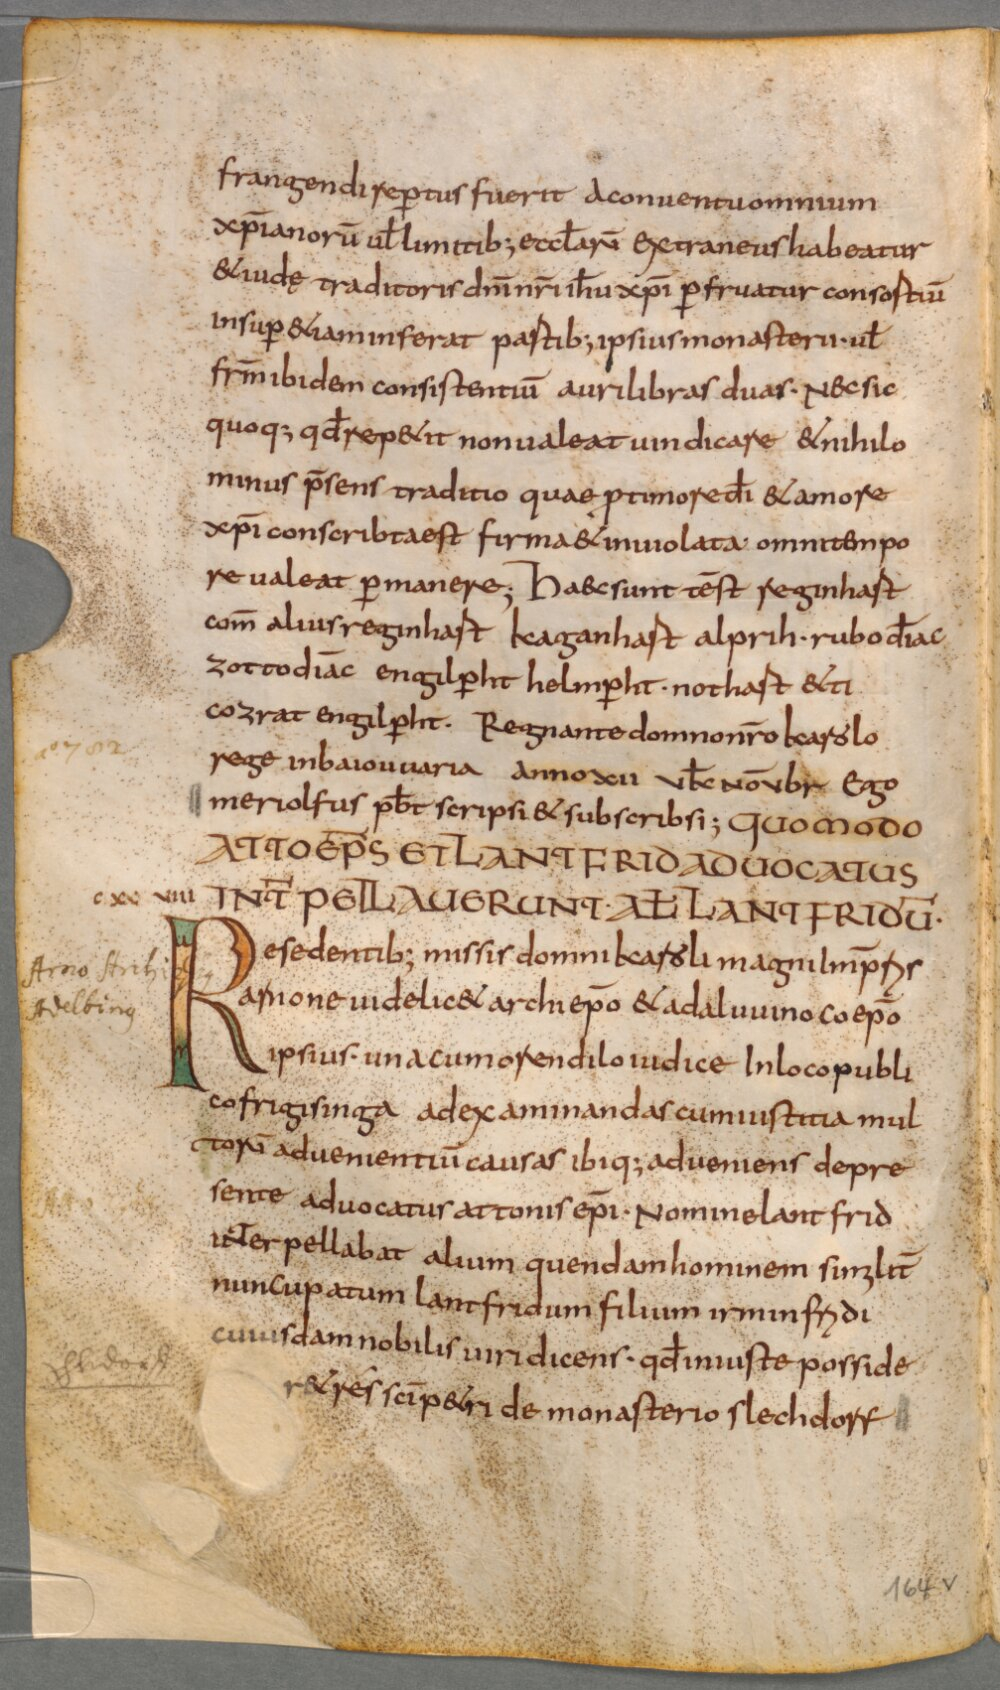 frangendi rep̱tus fuerit a conuentu omnium
xp̄ianorū ul̄ limitib; eccl̄arū extraneus habeatur
& iudę traditoris dn̄i nr̄i ih̄u xp̄i p̱fruatur consostiū
insup̱ &iam inferat pastib; ipsius monasterii · ul̄
fr̄m ibidem consistentiū auri libras duas · Nec sic
quoq; qd̄ rep&it non ualeat uindicare & nihilo
minus p̄sens traditio quae p̱ timore dī & amore
xp̄i conscribta est firma & inuiolata omni tempo
re ualeat p̱manere; Haec sunt tēst reginhast
com̄ alius reginhast kaganhast alprih · rubo diāc
zotto diāc engilp̱ht helmp̱ht · nothast &ti
cozrat engilp̱ht · Regnante domno nr̄o karolo
rege in baiouuaria anno xii vkł nōvbr Ego
meriolfus pb̄t scripsi & subscribsi; QUOMODO
a° 782
ATTO EP̄S ET LANTFRID ADUOCATUS
cxx viiii INT̄PELLAUERUNT · AL̄ LANTFRIDŪ ·
Resedentib; missis domni karoli magni imp̄ris
Arno Archiep
Adelbing
arnone uidelic& archiep̄o & adaluuino coep̄o
ipsius · una cum orendilo iudice In loco publi
co frigisinga ad examinandas cum iustitia mul
torū aduenientiū causas ibiq; adueniens de pre
sente aduocatus attonis ep̄i · Nomine lantfrid
interpellabat alium quendam hominem simlit̄
nuncupatum lantfridum filium irminfridi
cuiusdam nobilis uiri dicens · qd̄ iniuste posside
Schlidorf
r& res sc̄i p&ri de monasterio slechdorf
164 v